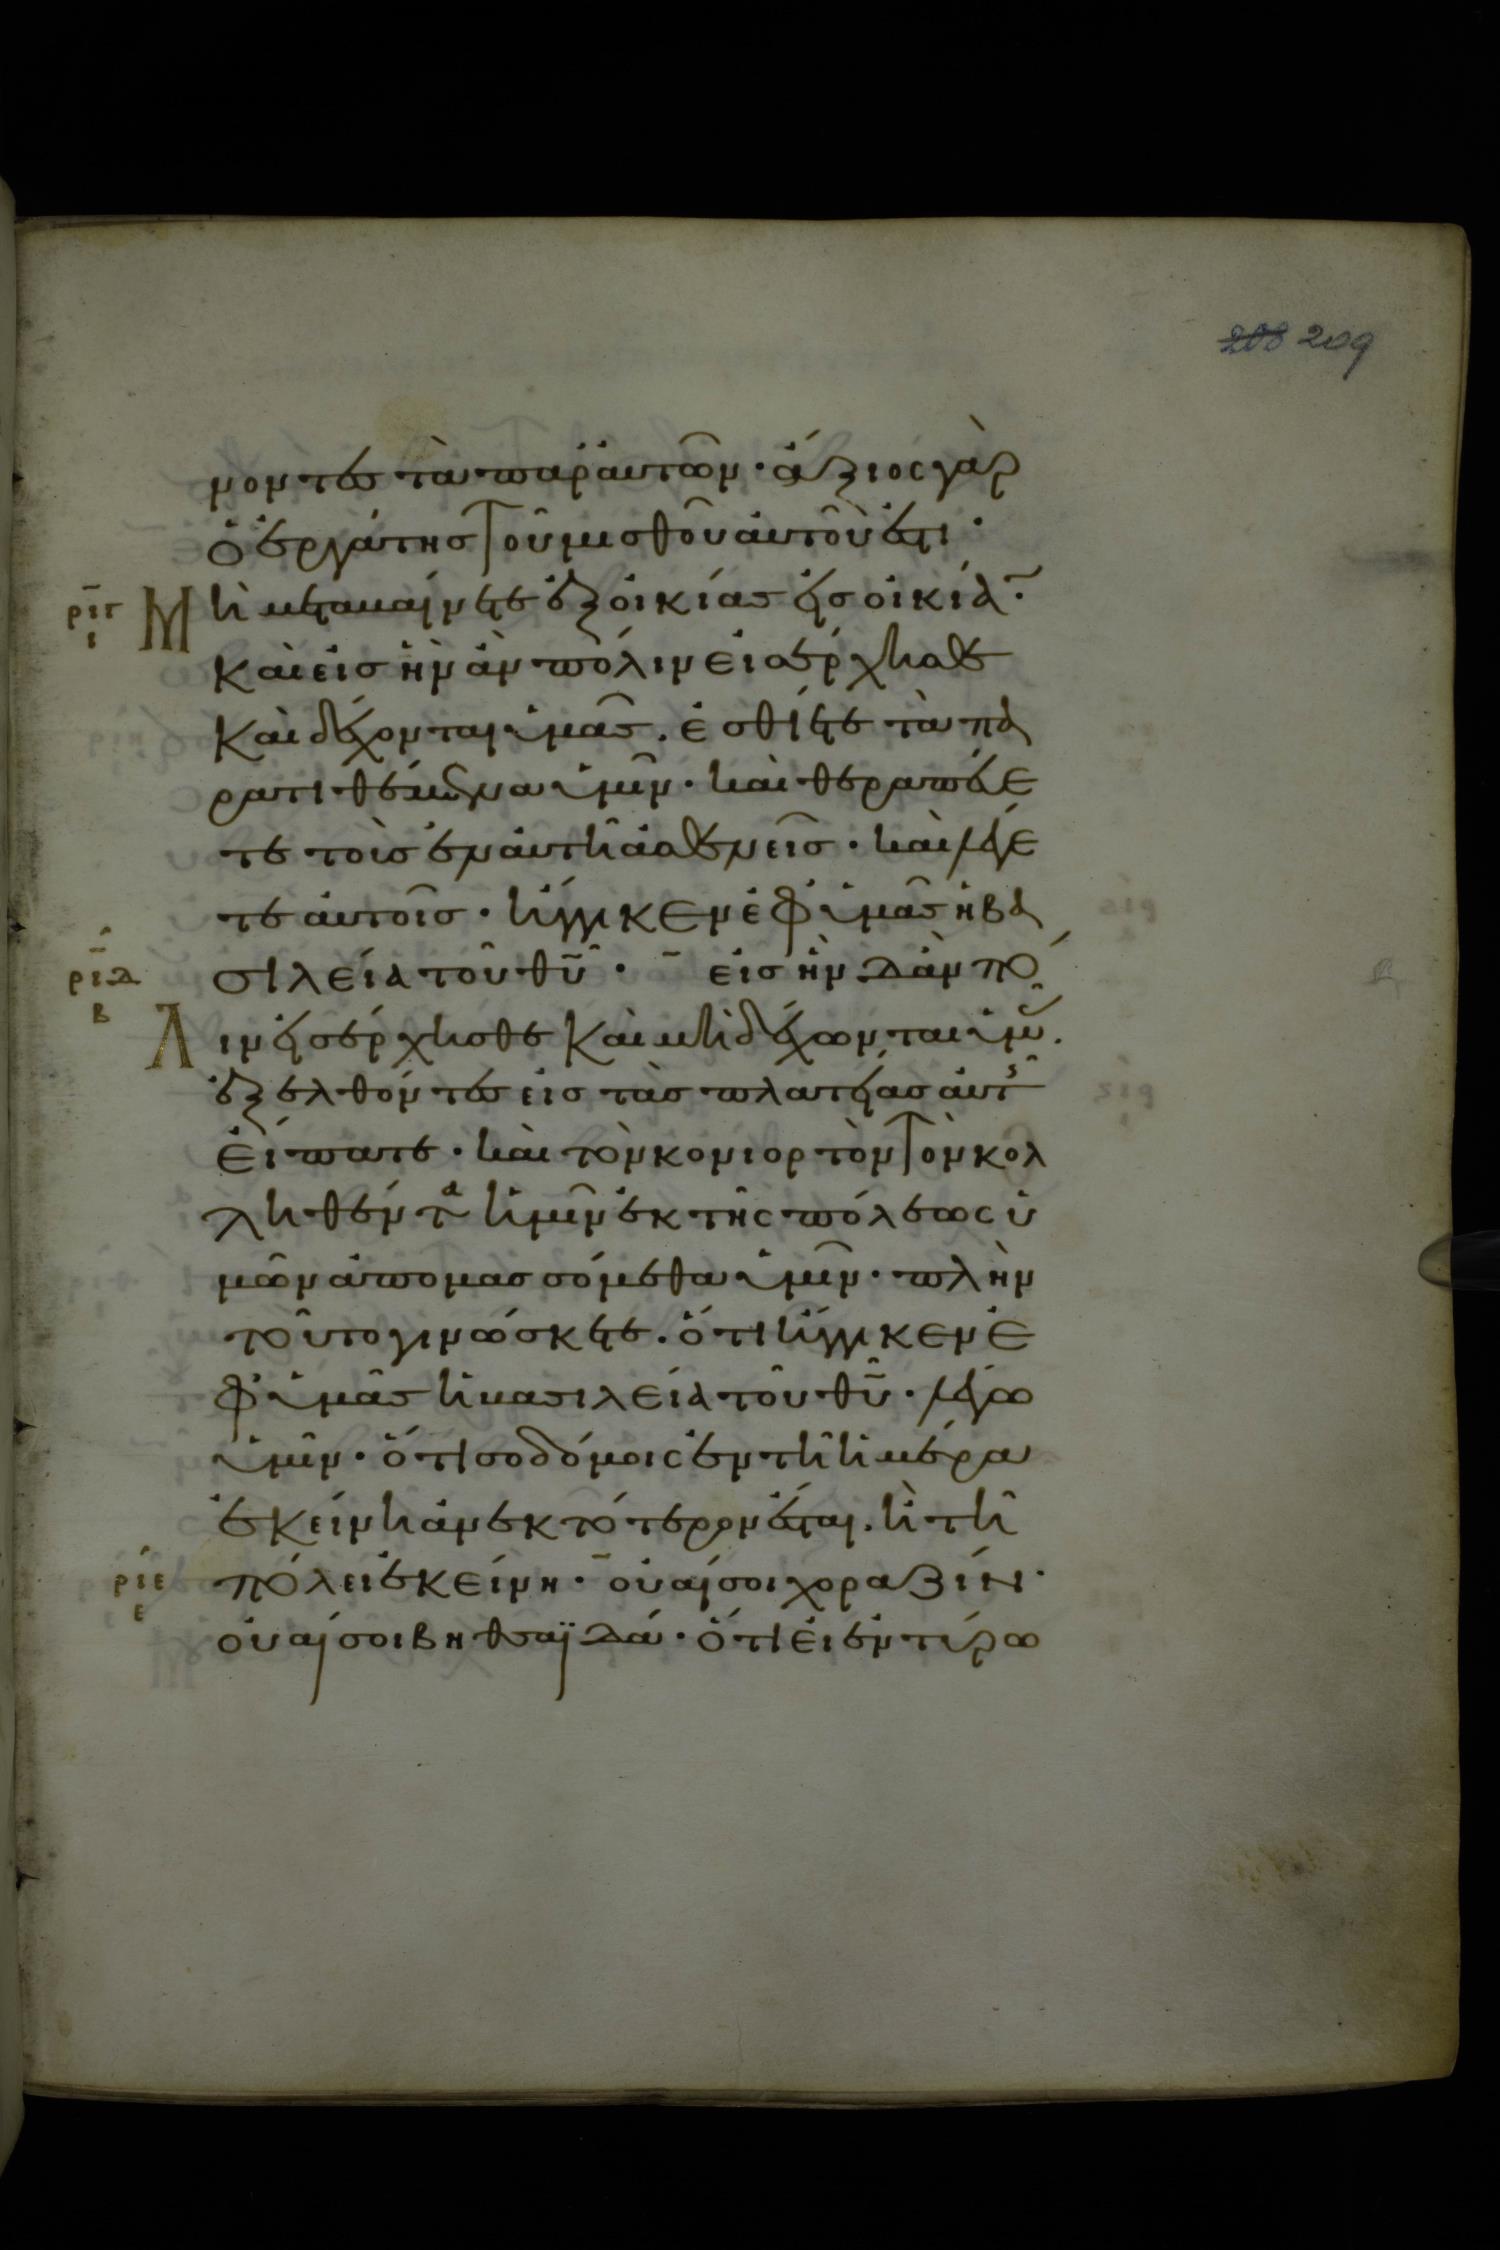 208 209
νοντες τὰ παρ' αὐτῶν · ἄξιος γὰρ
ὁ ἐργάτης τοῦ μισθοῦ αὐτοῦ ἐστι ·
ρῑγ
ι
Μὴ μεταβαίνετε ἐξ οἰκίας εἰς οἰκίᾱ ·
καὶ εἰς ἣν ἂν πόλιν εἰσέρχησθε
καὶ δέχονται ὑμᾶς . ἐσθίετε τὰ πα
ρατιθέμενα ὑμῖν · καὶ θεραπεύε
τε τοὺς ἐν αὐτῇ ἀσθενεῖς · καὶ λέγε
τε αὐτοῖς · ἤγγικεν ἐφ' ὑμᾶς ἡ βα
ρῑδ
β
σιλεία τοῦ θῡ · εἰς ἣν δ' ἂν πό
Λιν εἰσέρχησθε καὶ μὴ δέχωνται ὑμᾶς .
ἐξελθόντες εἰς τὰς πλατείας αὐτῆς
εἴπατε · καὶ τὸν κονιορτὸν τὸν κολ
ληθέντα ἡμῖν ἐκ τῆς πόλεως ὑ
μῶν ἀπομασσόμεθα ὑμῖν · πλὴν
τοῦτο γινώσκετε . ὅτι ἤγγικεν ἐ
φ' ὑμᾶς ἡ βασιλεία τοῦ θῡ · λέγω
ὑμῖν · ὅτι σοδόμοις ἐν τῇ ἡμέρα
ἐκείνη ἀνεκτότερον ἔσται . ἢ τῆ
ρῑε
ε
πόλει ἐκείνη · οὐαί σοι χοραζίν ·
οὐαί σοι βηθσαϊδά · ὅτι εἰ ἐν τύρω